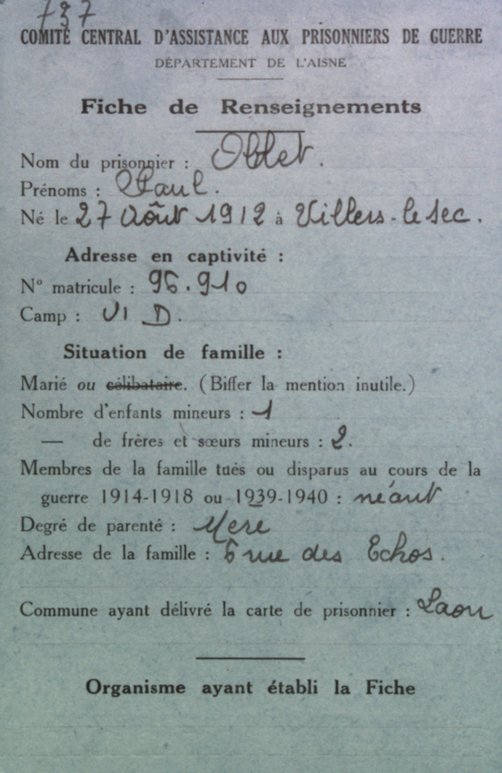 737
COMITÉ CENTRAL D'ASSISTANCE AUX PRISONNIERS DE GUERRE
DÉPARTEMENT DE L'AISNE
Fiche de Renseignements
Nom du prisonnier : Oblet.
Prénoms : Paul.
Né le 27 Août 1912 à Villers-le sec.
Adresse en captivité :
N° matricule : 96.910
Camp : VI D.
Situation de famille :
Marié ou célibataire. (Biffer la mention inutile.)
Nombre d'enfants mineurs : 1
— de frères et sœurs mineurs : 2.
Membres de la famille tués ou disparus au cours de la
guerre 1914-1918 ou 1939-1940 : néant
Degré de parenté : Mere
Adresse de la famille : 6 rue des Echos.
Commune ayant délivré la carte de prisonnier : Laon
Organisme ayant établi la Fiche